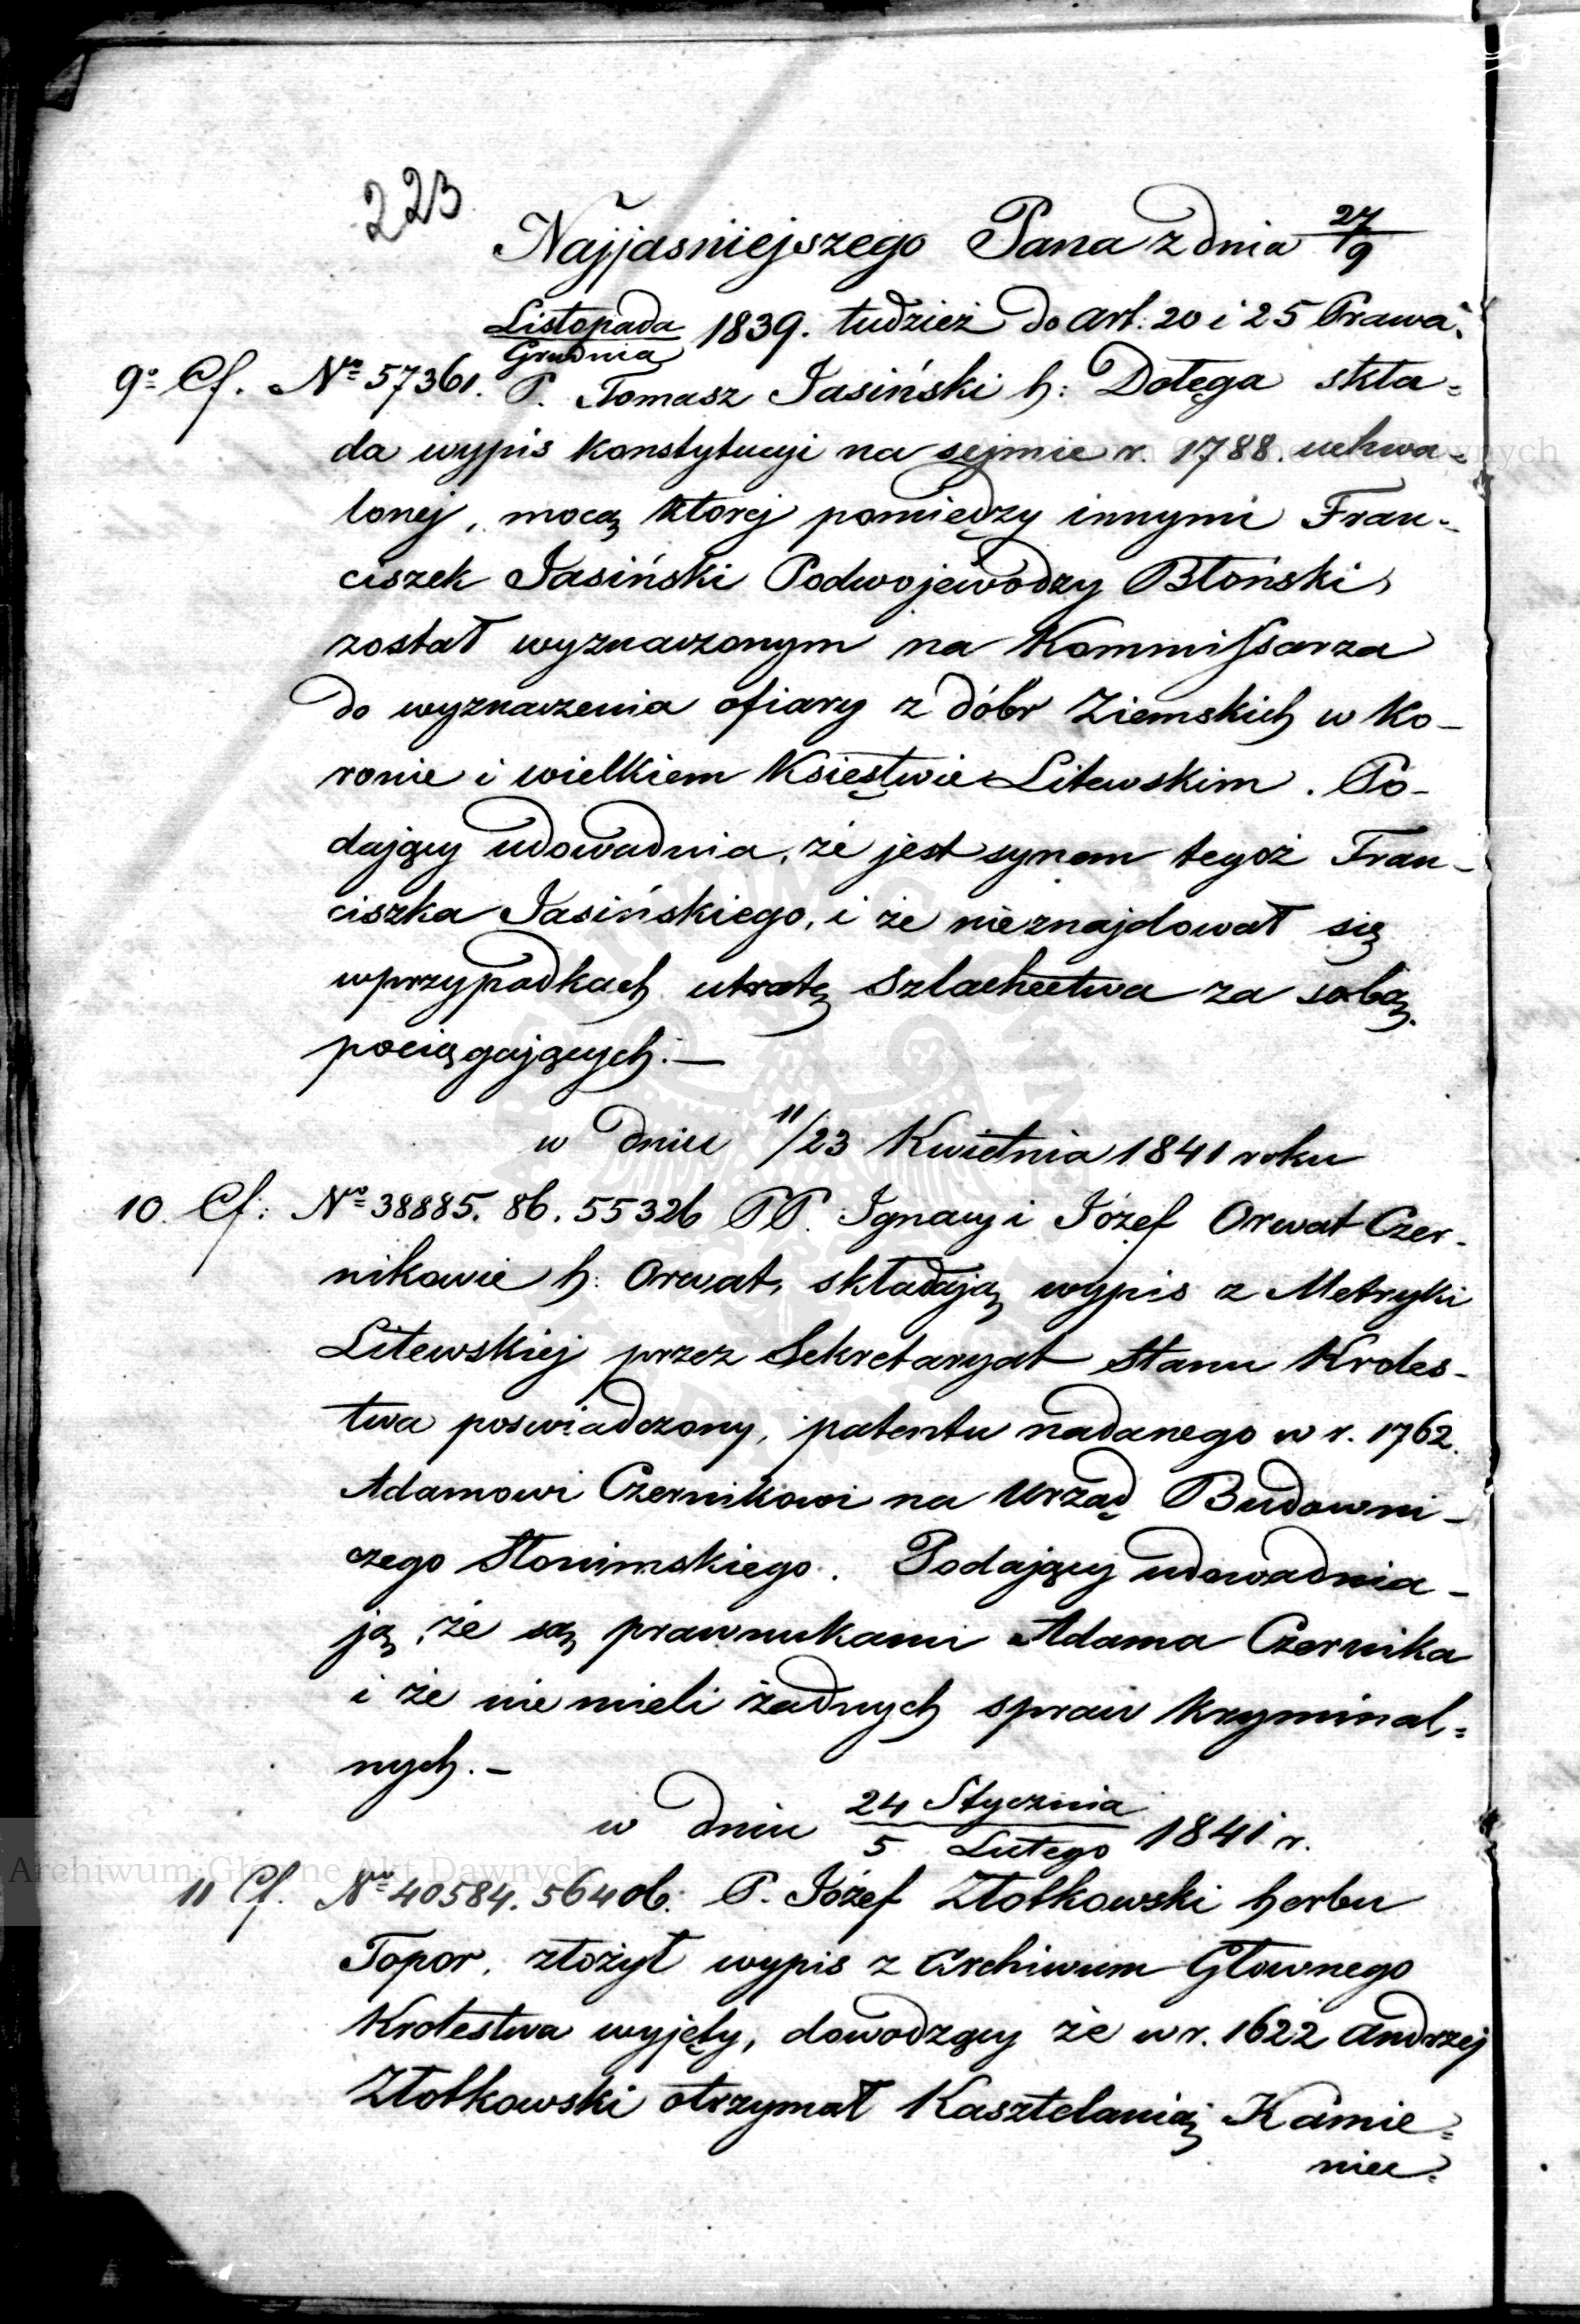 223
Najjasniejszego Pana z dnia 27/9
Listopada/Grudnia 1839. tudzież do art: 20 i 25 Prawa.
9o Cf. No 57361. P. Tomasz Jasiński h: Dołęga skła=
da wypis konstytucyi na sejmie r. 1788. uchwa=
lonej, mocą ktorej pomiędzy innymi Fran=
ciszek Jasiński Podwojewodzy Błoński
został wyznaczonym na Kommissarza
do wyznaczenia ofiary z dóbr Ziemskich w Ko-
ronie i wielkiem Księstwie Litewskim. Po-
dający udowadnia, że jest synem tegoż Fran-
ciszka Jasińskiego, i że nieznajdował się
w przypadkach utratę Szlachectwa za sobą
pociągających.—
w dniu 11/23 Kwietnia 1841 roku
10. Cf: No 38885. 86. 55326 PP. Ignacy i Józef Orwat Czer-
nikowie h: Orwat, składają wypis z Metryki
Litewskiej przez Sekretaryat Stanu Kroles-
twa poswiadczony, patentu nadanego w r. 1762.
Adamowi Czernikowi na Urząd Budowni-
czego Słonimskiego. Podający udowadnia-
ją, że są prawnukami Adama Czernika
i że nie mieli żadnych spraw kryminal=
nych.—
w dniu 24 Stycznia/5 Lutego 1841 r.
11 Cf. No 40584. 56406. P. Józef Złotkowski herbu
Topor, złożył wypis z Archiwum Głownego
Krolestwa wyjęty, dowodzący że w r. 1622 Andrzej
Złotkowski otrzymał Kasztelanią Kamie=
niec
Archiwum Główne Akt Dawnych